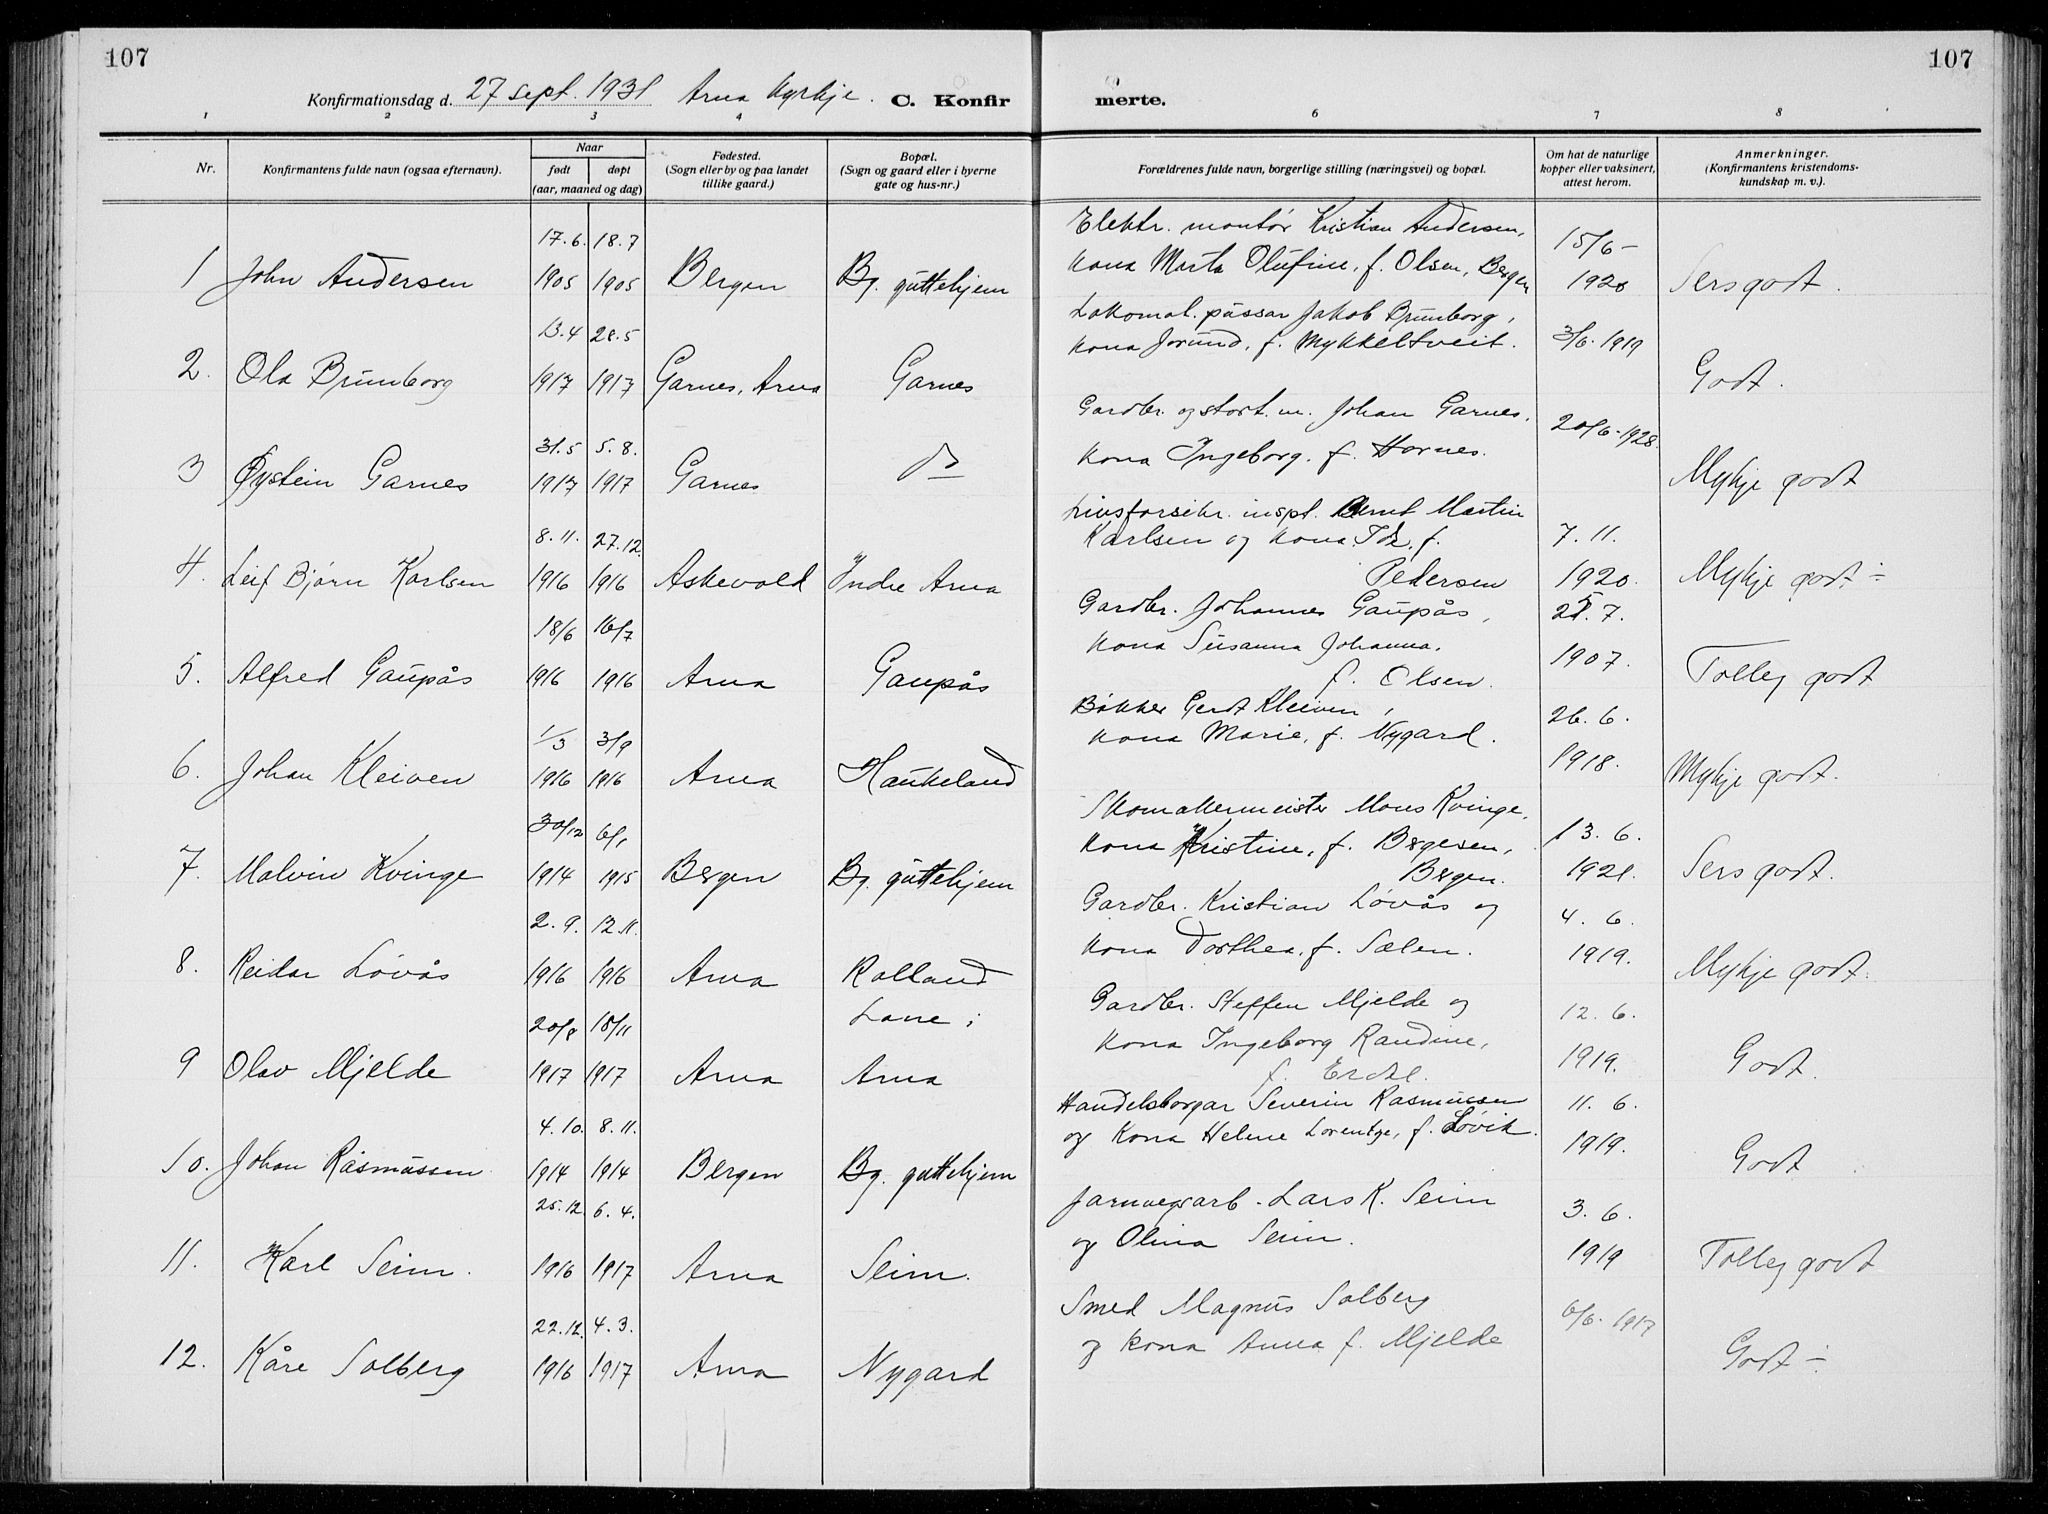 107
107
Konfirmationsdag d. 27 sept. 1931 Arna kyrkje. C. Konfirmerte.
1 2 3 4 6 7 8
Nr.
Konfirmantens fulde navn (ogsaa efternavn).
Naar
født døpt
(aar, maaned og dag)
Fødested.
(Sogn eller by og paa landet
tillike gaard.)
Bopæl.
(Sogn og gaard eller i byerne
gate og hus-nr.)
Forældrenes fulde navn, borgerlige stilling (næringsvei) og bopæl.
Om hat de naturlige
kopper eller vaksinert,
attest herom.
Anmerkninger.
(Konfirmantens kristendoms-
kundskap m. v.).
17.6. 18.7 Elektr. montør Kristian Andersen, 15/6-
1 John Andersen 1905 1905 Bergen Bg. guttehjem kona Marta Olufine, f. Olsen, Bergen 1920 Sers godt.
13.4 28.5 Lokomot. pussar Jakob Brunborg,
2. Ola Brunborg 1917 1917 Garnes, Arna Garnes kona Jorund, f. Mykkeltveit. 3/6. 1919 Godt.
31.5 5.8. Gardbr. og stort. m. Johan Garnes, 20/6-1928.
3 Øystein Garnes 1917 1917 Garnes do kona Ingeborg. f. Hornes. Mykje godt
8.11. 27.12. Livsforsikr. inspt. Bernt Martin
Karlsen og kona Ida, f. 7. 11.
4. Leif Bjørn Karlsen 1916 1916 Askevold Indre Arna Pedersen 1920. Mykje godt ÷
18/6 16/7 Gardbr. Johannes Gaupås, 25.7.
kona Susanna Johanna, 1907.
5. Alfred Gaupås 1916 1916 Arna Gaupås f. Olsen. Tolleg godt
1/3 3/9 Bøkker Gerdt Kleiven, 26. 6.
kona Marie, f. Nygard.
6. Johan Kleiven 1916 1916 Arna Haukeland 1918. Mykje godt.
30/12 6/1 Skomakermeister Mons Kvinge, 13. 6.
kona Kristine, f. Bergesen,
7. Malvin Kvinge 1914 1915 Bergen Bg. guttehjem Bergen. 1921. Sers godt.
2. 9. 12.11. Gardbr. Kristian Løvås og 4. 6.
kona Dorthea, f. Sælen. 1919.
8. Reidar Løvås 1916 1916 Arna Rolland Mykje godt.
20/8 18/11 Lone i Gardbr. Steffen Mjelde og 12. 6.
kona Ingeborg Randine, 1919.
9 Olav Mjelde 1917 1917 Arna Arna f. Erdal. Godt.
4.10. 8.11. Handelsborgar Severin Rasmussen 11. 6.
og kona Helene Lorentze, f. Løvik. 1919.
10. Johan Rasmussen 1914 1914 Bergen Bg. guttehjem Godt
25.12. 6.4. Jarnvegsarb. Lars K. Seim 3. 6.
og Olina Seim. 1919
11. Karl Seim. 1916 1917 Arna Seim. Tolleg godt
22.12. 4.3. Smed Magnus Solberg 6/6. 1917
og kona Anna f. Mjelde
12. Kåre Solberg 1916 1917 Arna Nygard Godt ÷